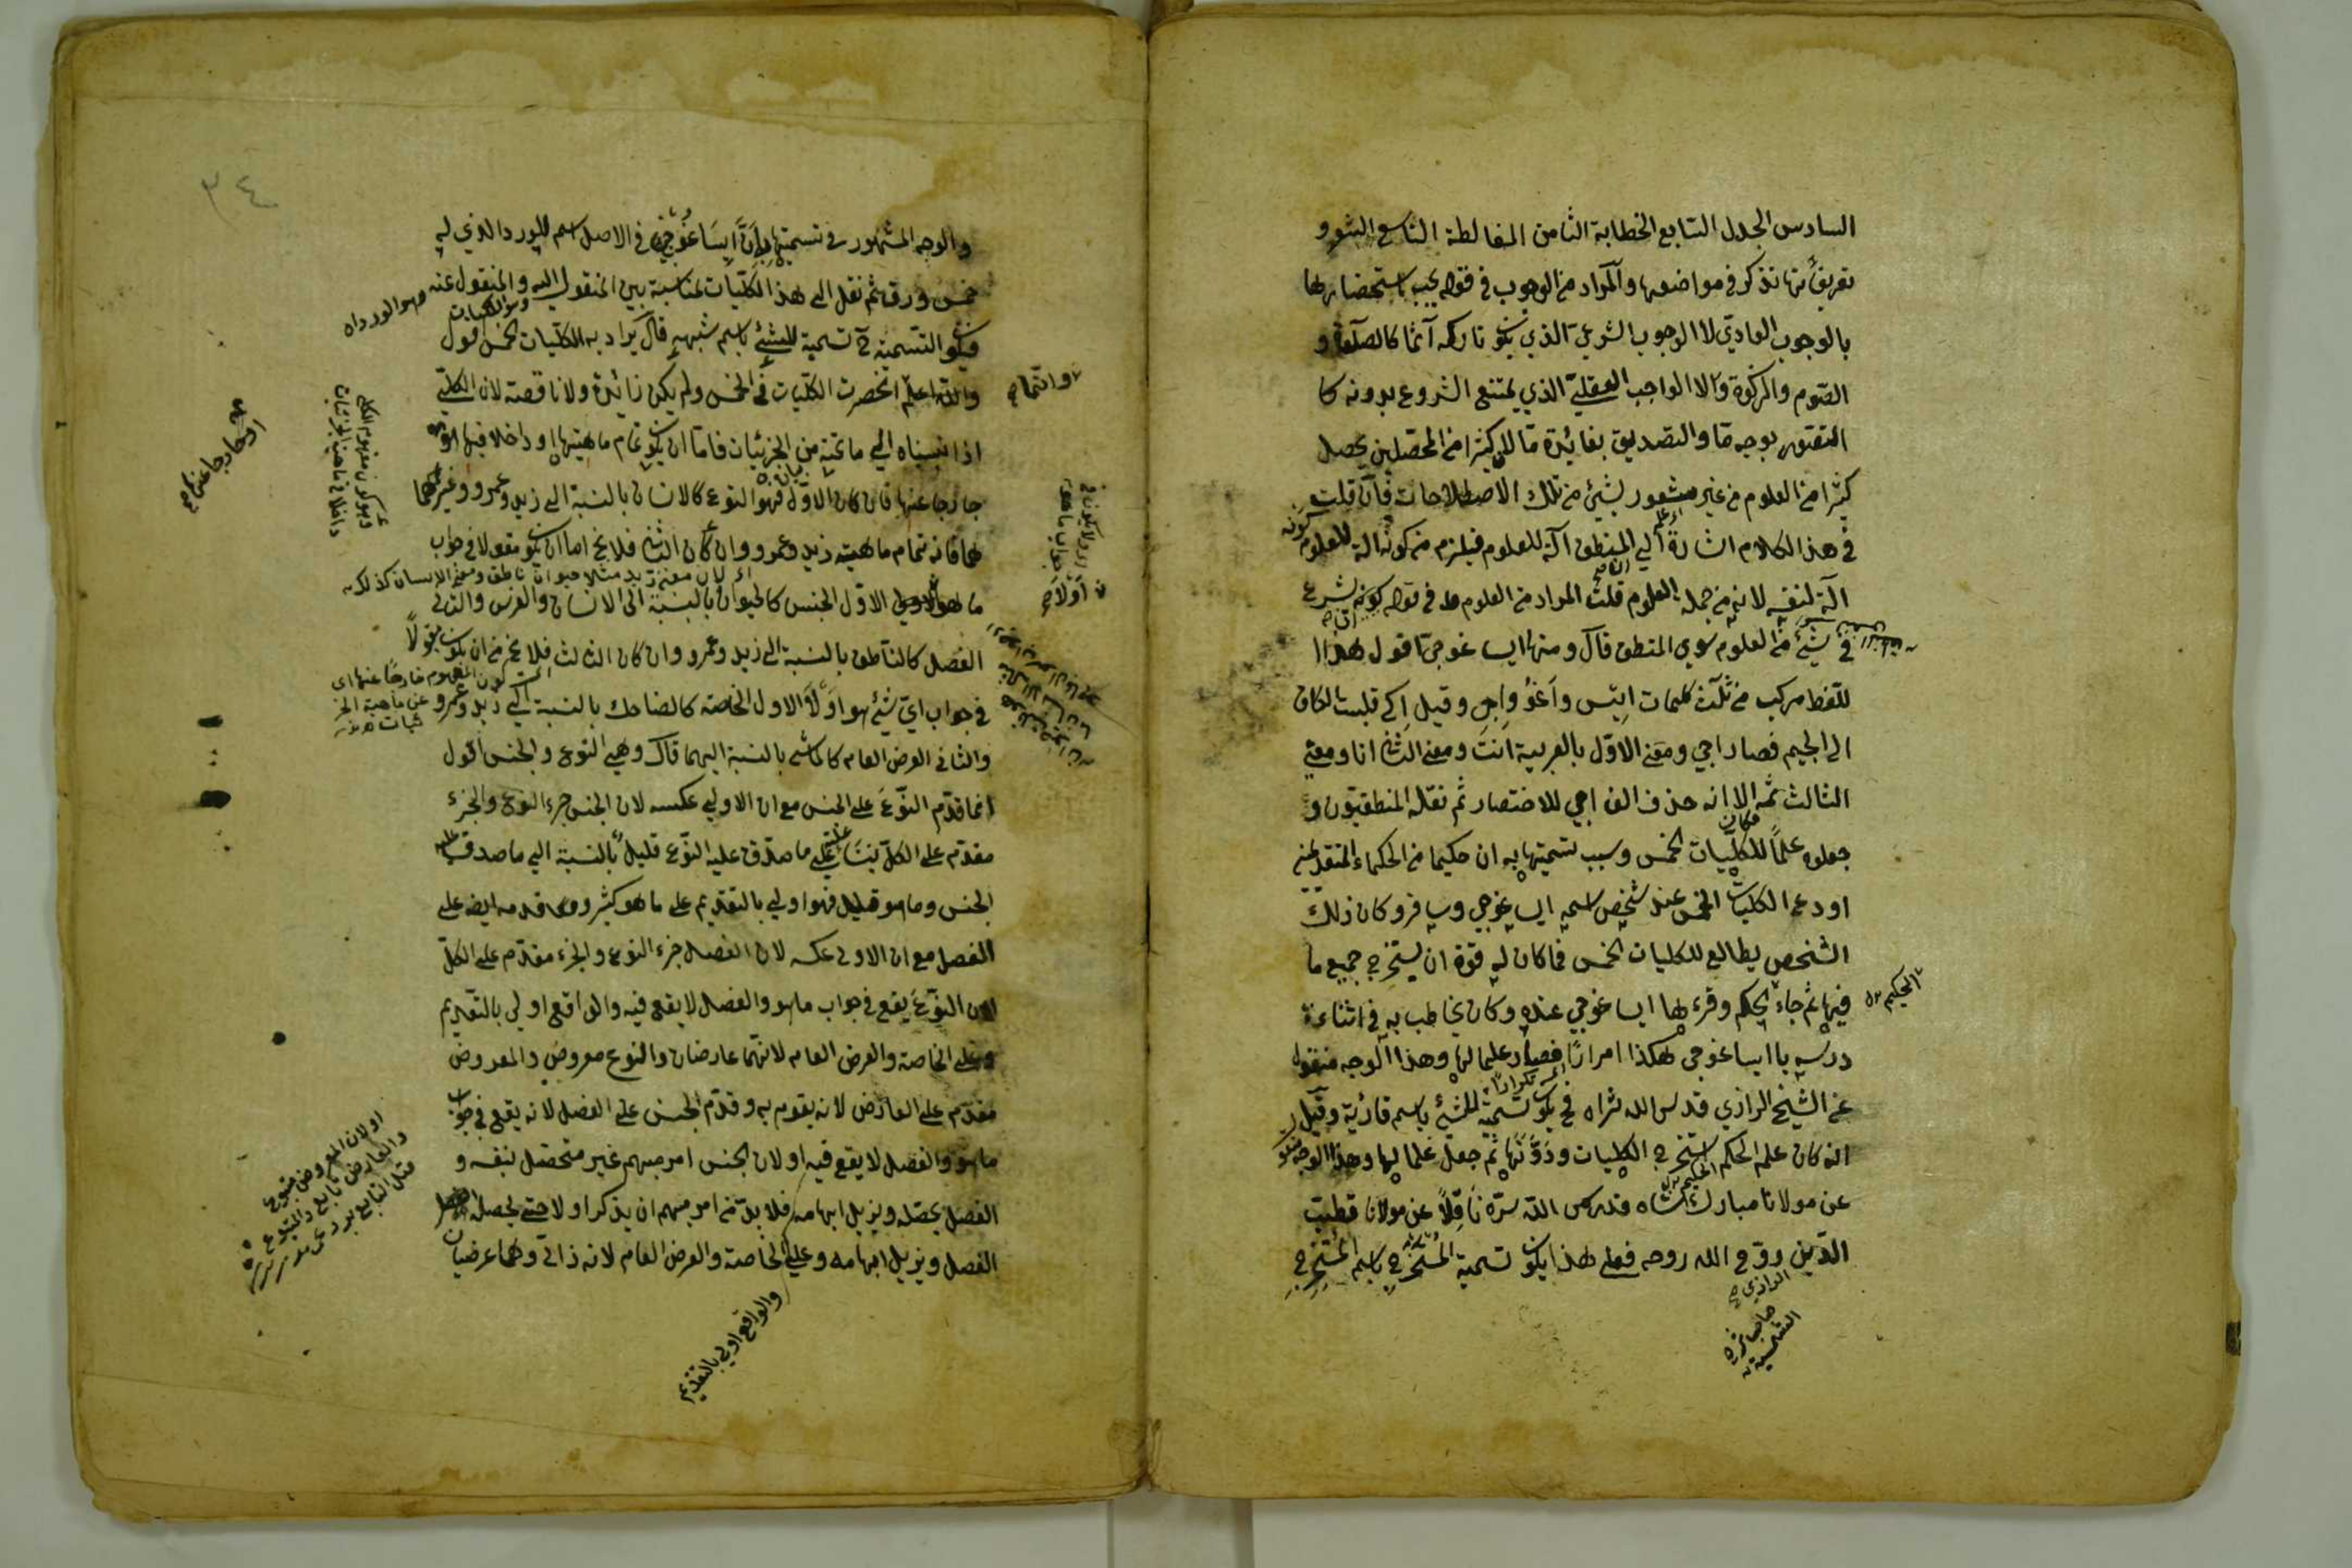 السادس الجدل السابع الخطابة الثامن المغالطة التاسع الشعر و
تعريفاتها تذكر في مواضعها والمراد من الوجوب في قوله يجب استحضارها
بالوجوب العادي لا الوجوب الشرعي الذي يكون تاركه آثما كالصلوة و
الصوم والزكوة ولا الواجب العقلي الذي يمتنع الشروع بدونه كا
التصور بوجه ما والتصديق بفائدة ما لان كثيرا من المحصلين يحصل
كثيرا من العلوم من غير شعور بشيء من تلك الاصطلاحات فان قلت
في هذا الكلام اشارة الي المنطق آلة للعلوم فيلزم من كونه آلة للعلوم كونه
آلة لنفسه لانه من جملة العلوم قلت المراد من العلوم في قوله كونه يشرع
في شيء من العلوم سوي المنطق قال ومنها ايساغوجي اقول هذا ا
للفظ مركب من ثلث كلمات ايس واغو واجي وقيل اكي قلبت الكاف
الي الجيم فصار اجي ومعني الاول بالعربية انت ومعني الثاني انا ومعني
الثالث ثمه الا انه حذف الف اجي للاختصار ثم نقله المنطقيون و
جعلوه علماً للكليات الخمس وسبب تسميتها به ان حكيما من الحكماء المتقدمين
اودع الكليات الخمس عند شخص اسمه ايساغوجي وسافر وكان ذلك
الشخص يطالع للكليات الخمس فما كان له قوة ان يستخرج جميع ما
فيها ثم جاء الحكيم وقرء لها ايساغوجي عنده وكان يخاطب به في اثناء
الحكيم
درسه يا ايساغوجي هكذا امرارًا فصار علما لها وهذا الوجه منقول
عن الشيخ الرازي قدس الله ثراه فح يكون تسمية للشيء باسم قاريه وقيل
انه كان علم الحكيم استخرج الكليات ودوّنها ثم جعل علما لها وهذا الوجه منقو
عن مولانا مباركشاه قدس الله سره ناقلاً عن مولانا قطب
الدين روّح الله روحه فعلي هذا يكون تسمية المستخرَج باسم المستخرِج
الرازي
الشمسية
٣٤
والوجه المشهور في تسميتها به ان ايساغوجي في الاصل اسم للورد الذي له
خمس ورق ثم نقل الي هذا الكليات لمناسبة بين المنقول اليه والمنقول عنه وهو الورد
فيكون التسمية ح تسمية للشيء باسم شبهه قال يراد به الكليات الخمس اقول
والله اعلم انحصرت الكليات في الخمس ولم يكن زائدة ولا ناقصة لان الكلي
وانما
اذا نسبناه الي ما تحته من الجزئيات فاما ان يكون تمام ماهيتها او داخلا فيها او
خارجا عنها فان كان الاول فهو النوع كالانسان بالنسبة الي زيد وعمرو وغيرهما
او خارجا عنها
لها فانه تمام ماهية زيد وعمرو وان كان الثاني فلا يخ اما ان يكون مقولا في جواب
اي لان معني زيد مثلا حيوان ناطق ومعني الانسان كذلك
ما هو اولا الاول الجنس كالحيوان بالنسبة الي الانسان والفرس والثاني
الفصل كالناطق بالنسبة الي زيد وعمرو وان كان الثالث فلا يخ من ان يكون مقولاً
في جواب اي شيء هو اوّلا الاول الخاصة كالضاحك بالنسبة الي زيد وعمرو
والثاني العرض العام كالماشي بالنسبة اليهما قال وهي النوع والجنس اقول
انما قدّم النوع علي الجنس مع ان الاولي عكسه لان الجنس جزء النوع والجزء
مقدّم علي الكل بناء علي ما صدق عليه النوع قليل بالنسبة الي ما صدق عليه
الجنس وما هو قليل فهو اولي بالتقديم علي ما هو كثير وانما قدمه ايضا علي
الفصل مع ان الاولي عكسه لان الفصل جزء النوع والجزء مقدّم علي الكل
لان النوع يقع في جواب ما هو والفصل لا يقع فيه والواقع اولي بالتقديم
وعلي الخاصة والعرض العام لانهما عارضان والنوع معروض والمعروض
مقدّم علي العارض لانه يقوم به وقدّم الجنس علي الفصل لانه يقع في جواب
ما هو والفصل لا يقع فيه او لان الجنس امر مبهم غير متحصل بنفسه و
الفصل يحصله ويزيل ابهامه فلا بد من امر مبهم ان يذكر اولا حتي يحصله
الفصل ويزيل ابهامه وعلي الخاصة والعرض العام لانه ذاتي وهما عرضيان
او لان المعروض متبوع
والعارض تابع والمتبوع
والواقع اولي بالتقديم